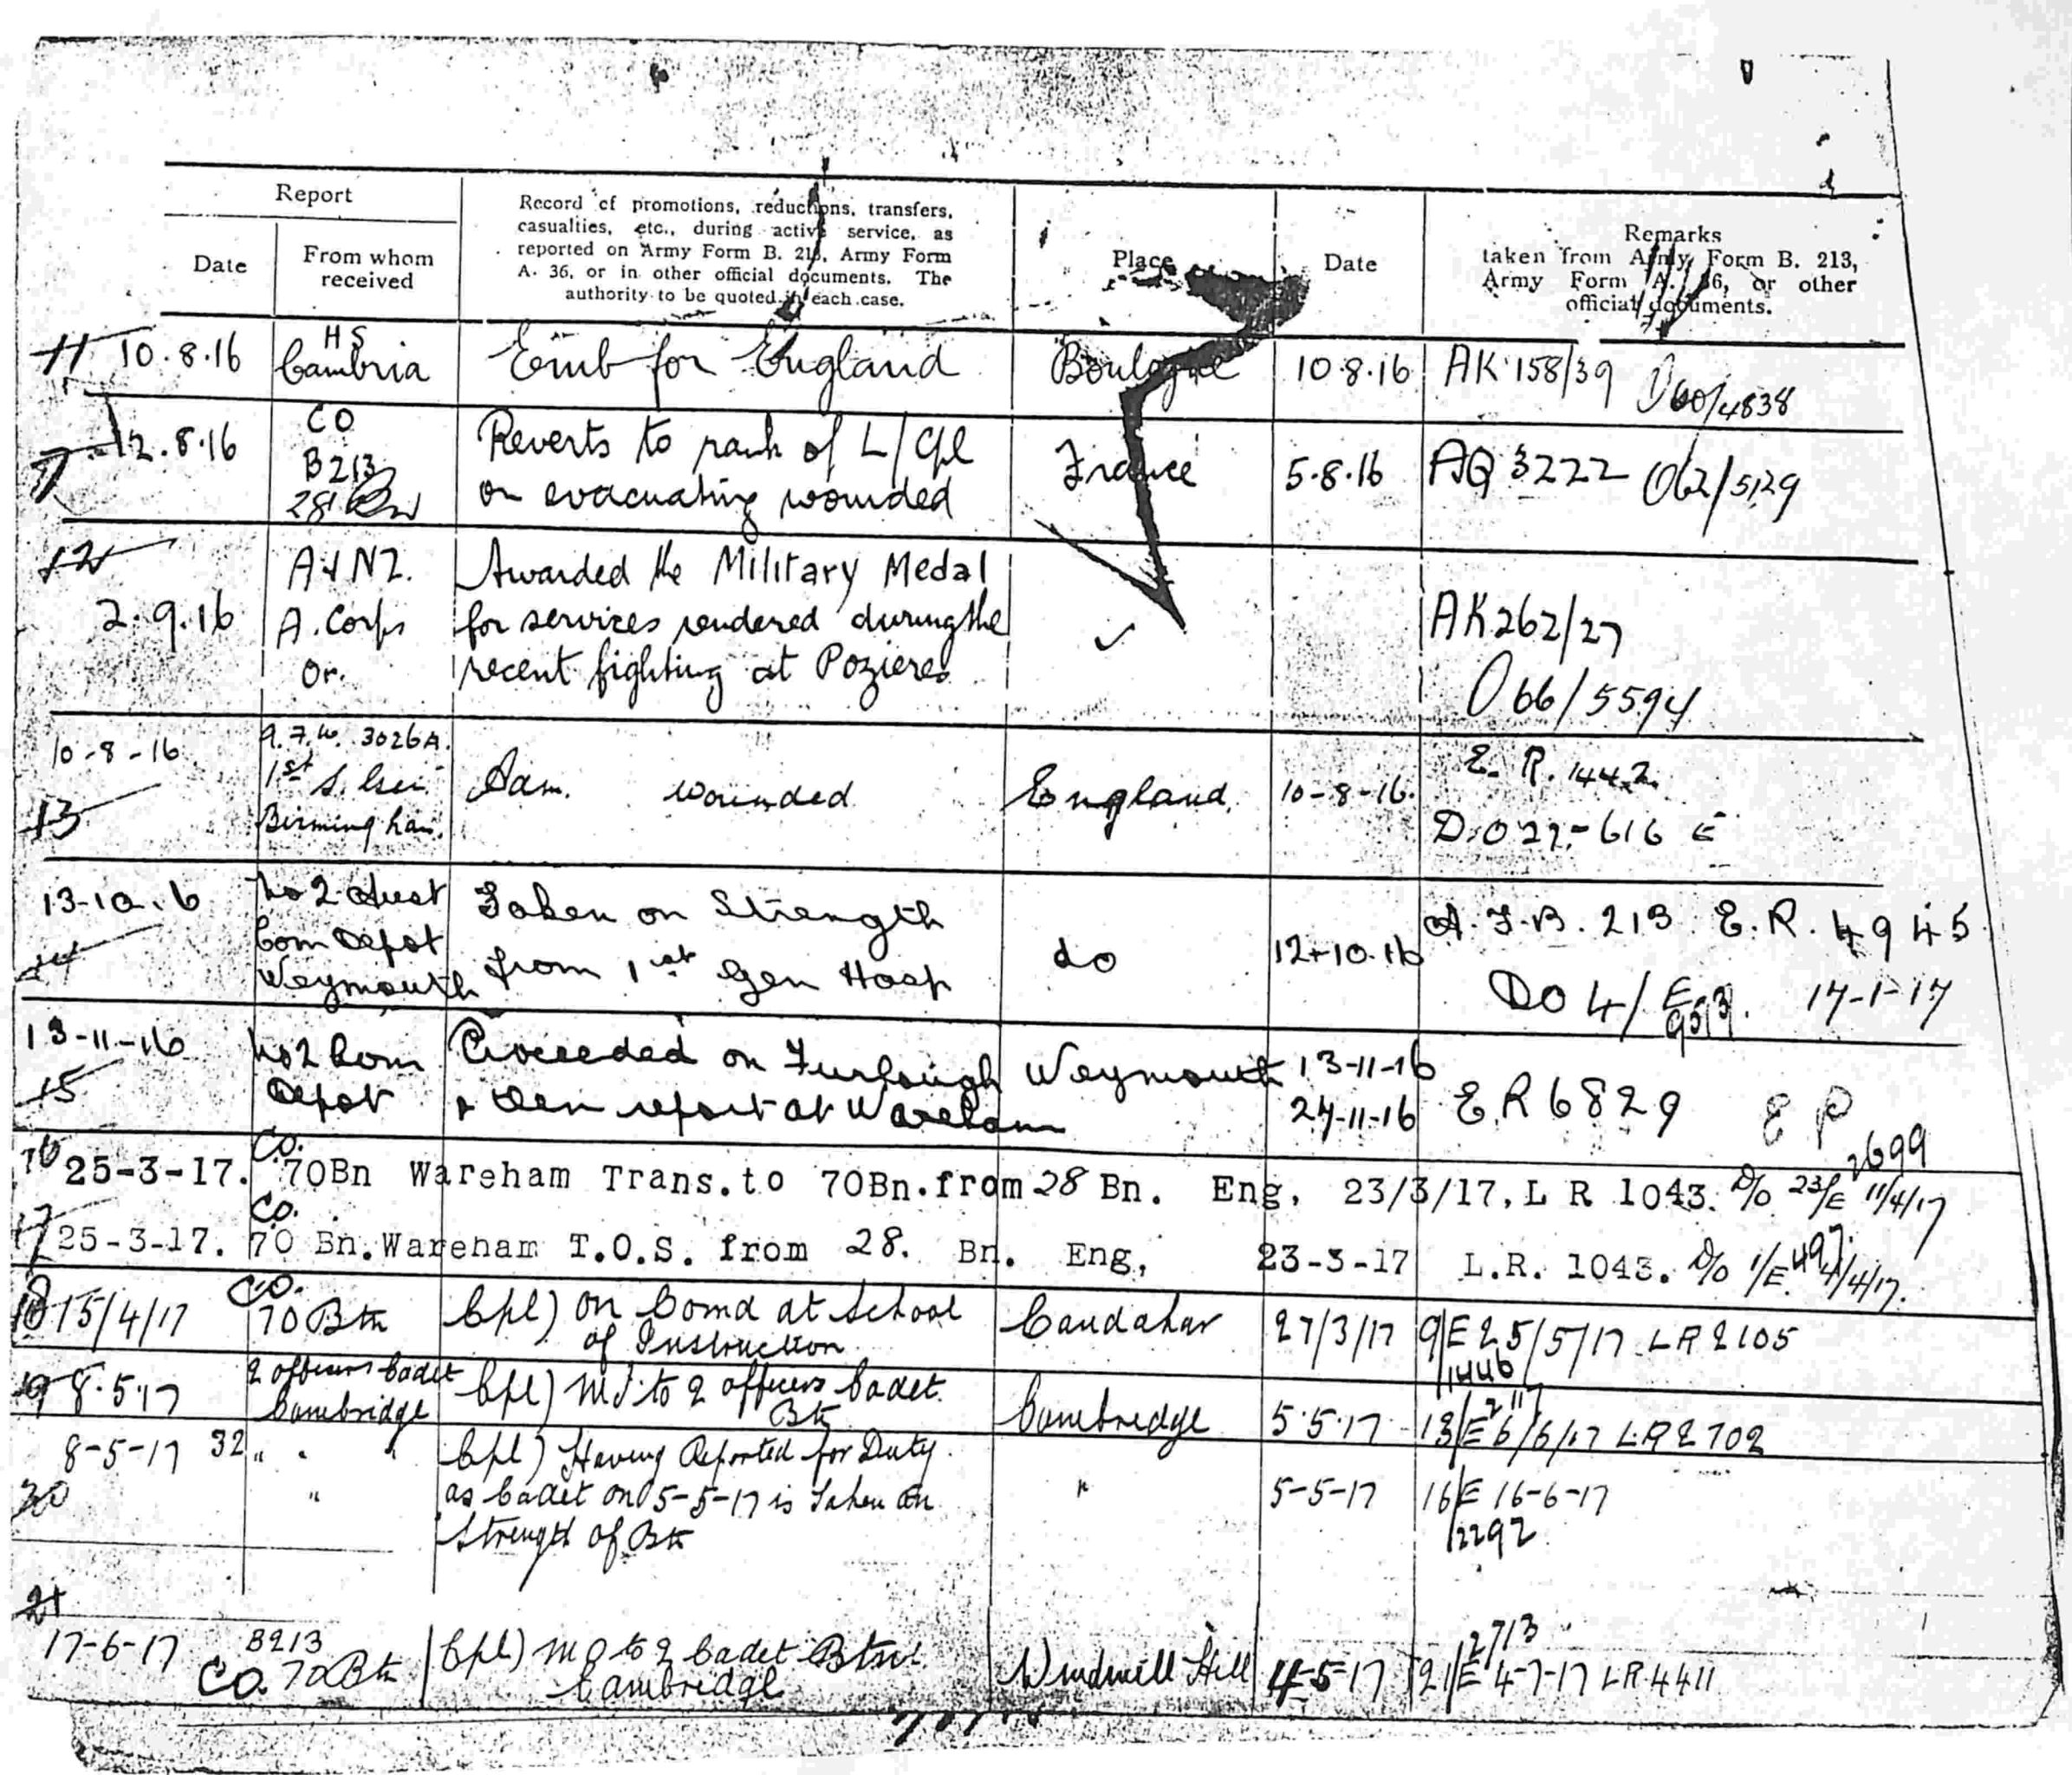 Report
Date
From whom
received
Record of promotions, reductions, transfers,
casualties, etc., during active service, as
reported on Army Form B. 213, Army Form
A. 36, or in other official documents. The
authority to be quoted in each case.
Place
Date
Remarks
taken from Army Form B. 213,
Army Form A. 36, or other
official documents.
11 10.8.16 HS Cambria Emb for England Boulogne 10.8.16 AK 158/39 O60/4838
12.8.16 CO
B213
28 Bn
Reverts to rank of L/Cpl
on evacuating wounded
France 5.8.16 AQ 3222 O62/5129
12
2.9.16
A & NZ.
A. Corps
Or.
Awarded the Military Medal
for services rendered during the
recent fighting at Pozieres
AK262/27
O66/5594
10-8-16
13
A.F.W. 3026A.
1st S. Gen.
Birmingham.
Adm. wounded England. 10-8-16.
E. R. 1442.
D.O 27-616 E
13-10.16
14
No 2 Aust
Com Depot
Weymouth
Taken on Strength
from 1st Gen Hosp
do 12-10.16
A.F.B. 213 E.R. 4945
DO 4/ E 17-1-17
13-11-16
15
No 2 Com
Depot
Proceeded on Furlough
& then report at Wareham
Weymouth 13-11-16
27-11-16
ER 6829
16 25-3-17. CO. 70Bn Wareham Trans.to 70Bn.from 28 Bn. Eng, 23/3/17. L R 1043. D/O 23/E 2699 11/4/17
17 25-3-17. CO. 70 Bn.Wareham T.O.S. from 28. Bn. Eng, 23-3-17 L.R. 1043. D/O 1/E 497 4/4/17.
18 15/4/17 CO.
70 Btn
Cpl) on Comd at School
of Instruction
Candahar 27/3/17 9/E 25/5/17 LR 2105
1446
19 8.5.17 2 officers Cadet
Cambridge
Cpl) M.I. to 2 officers Cadet.
Btn
Cambridge 5.5.17 13/E 6/6/17 LR 2702
2117
8-5-17 32 " " "
Cpl) Having Reported for Duty
as Cadet on 5-5-17 is Taken on
Strength of Btn
" 5-5-17 16/E 16-6-17
2292
21
17-6-17 B213
CO. 70 Btn
Cpl) M O to 2 Cadet Btn
Cambridge
Windmill Hill 4-5-17 21/E 4-7-17 LR 4411
2713